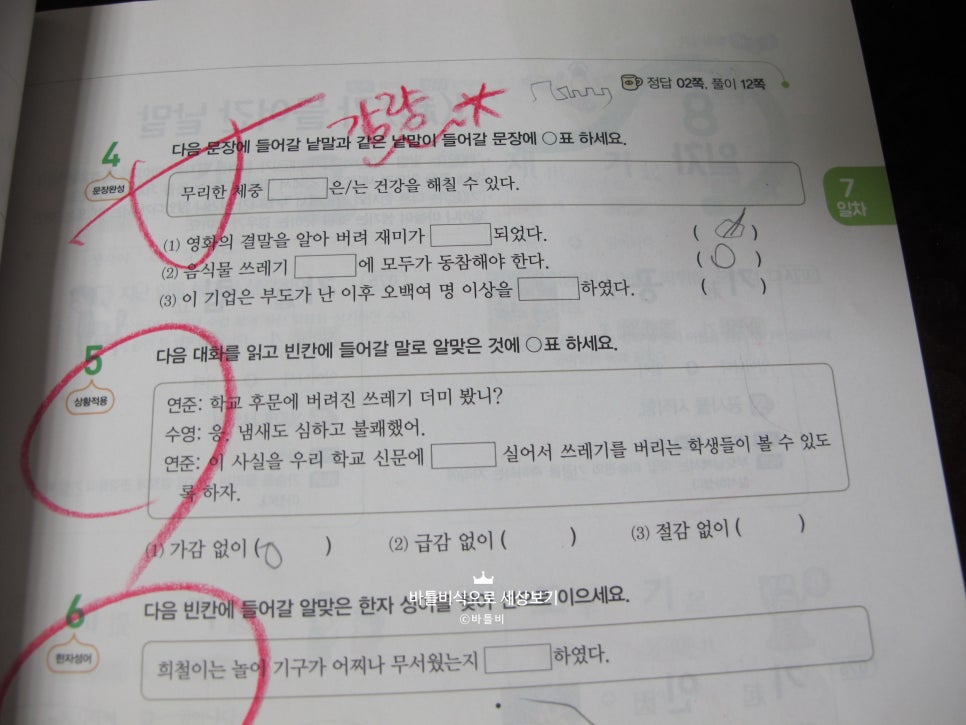 정답 02쪽, 풀이 12쪽
감량
4
문장완성
다음 문장에 들어갈 낱말과 같은 낱말이 들어갈 문장에 ○표 하세요.
무리한 체중 은/는 건강을 해칠 수 있다.
7
일차
(1) 영화의 결말을 알아 버려 재미가 되었다. ( )
(2) 음식물 쓰레기 에 모두가 동참해야 한다. ( ○ )
(3) 이 기업은 부도가 난 이후 오백여 명 이상을 하였다. ( )
5
상황적용
다음 대화를 읽고 빈칸에 들어갈 말로 알맞은 것에 ○표 하세요.
연준: 학교 후문에 버려진 쓰레기 더미 봤니?
수영: 응. 냄새도 심하고 불쾌했어.
연준: 이 사실을 우리 학교 신문에 실어서 쓰레기를 버리는 학생들이 볼 수 있도
록 하자.
(1) 가감 없이 ( ○ ) (2) 급감 없이 ( ) (3) 절감 없이 ( )
바틀비식으로 세상보기
©바틀비
6
한자성어
다음 빈칸에 들어갈 알맞은 한자 성어를 찾아 이으세요.
희철이는 놀이 기구가 어찌나 무서웠는지 하였다.